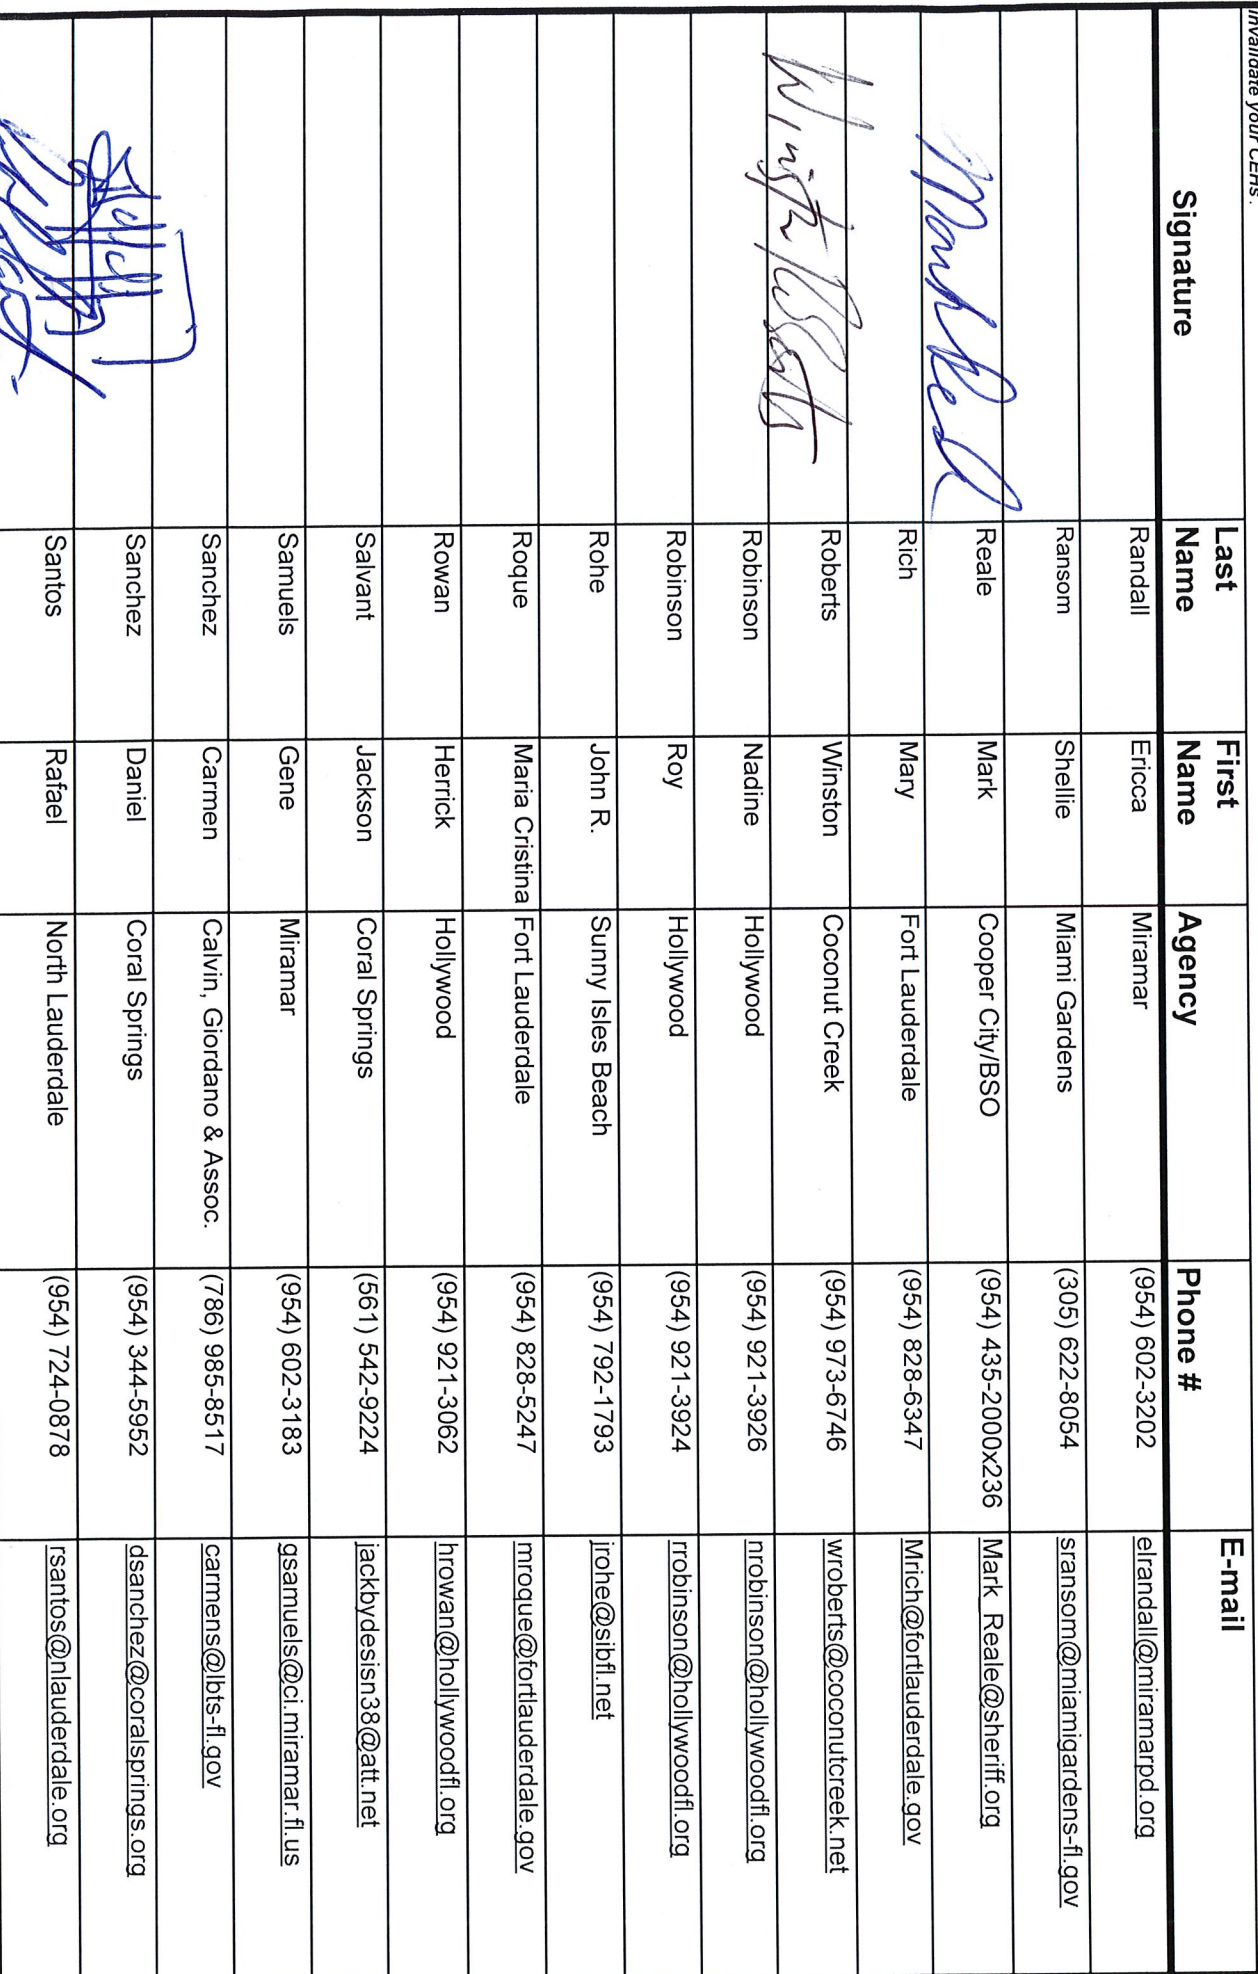 invalidate your CEHs.
Signature Last Name First Name Agency Phone # E-mail
Randall Ericca Miramar (954) 602-3202 elrandall@miramarpd.org
Ransom Shellie Miami Gardens (305) 622-8054 sransom@miamigardens-fl.gov
Reale Mark Cooper City/BSO (954) 435-2000x236 Mark_Reale@sheriff.org
Rich Mary Fort Lauderdale (954) 828-6347 Mrich@fortlauderdale.gov
Winston Roberts Roberts Winston Coconut Creek (954) 973-6746 wroberts@coconutcreek.net
Robinson Nadine Hollywood (954) 921-3926 nrobinson@hollywoodfl.org
Robinson Roy Hollywood (954) 921-3924 rrobinson@hollywoodfl.org
Rohe John R. Sunny Isles Beach (954) 792-1793 jrohe@sibfl.net
Roque Maria Cristina Fort Lauderdale (954) 828-5247 mroque@fortlauderdale.gov
Rowan Herrick Hollywood (954) 921-3062 hrowan@hollywoodfl.org
Salvant Jackson Coral Springs (561) 542-9224 jackbydesisn38@att.net
Samuels Gene Miramar (954) 602-3183 gsamuels@ci.miramar.fl.us
Sanchez Carmen Calvin, Giordano & Assoc. (786) 985-8517 carmens@lbts-fl.gov
Sanchez Daniel Coral Springs (954) 344-5952 dsanchez@coralsprings.org
Santos Rafael North Lauderdale (954) 724-0878 rsantos@nlauderdale.org